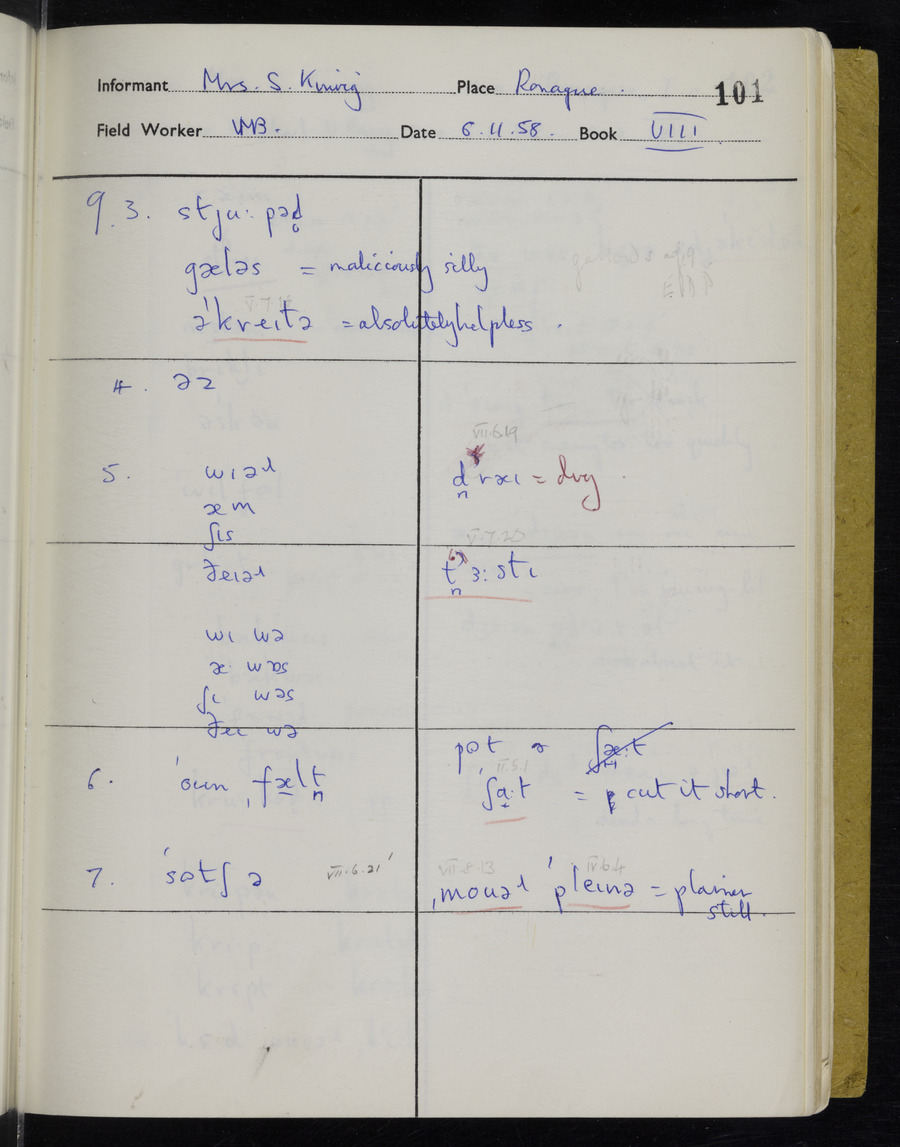 Informant Mrs. S. Kinvig Place Ronague. 101
Field Worker VMB. Date 6.11.58. Book VIII
9.3. stjuːpəd̥
gæləs = maliciously silly
əˈkreɪtə = absolutely helpless.
4. əz
5. wɪəɹ
æm
ʃɪs
ðeɪəɹ
wɪ wə
æ· wɒs
ʃɪ wəs
ðeɪ wə
VII.6.19
d̪ræɪ = dry
V.7.20
t̪ɜːstɪ
6. ˈoun ˌfælt̪
pɒt ə
II.5.1
ʃa·t = cut it short.
7. ˈsɒtʃ ə VII.6.21
VII.8.13 IV.6.4
ˌmouəɹ ˈpleɪnə = plainer
still.